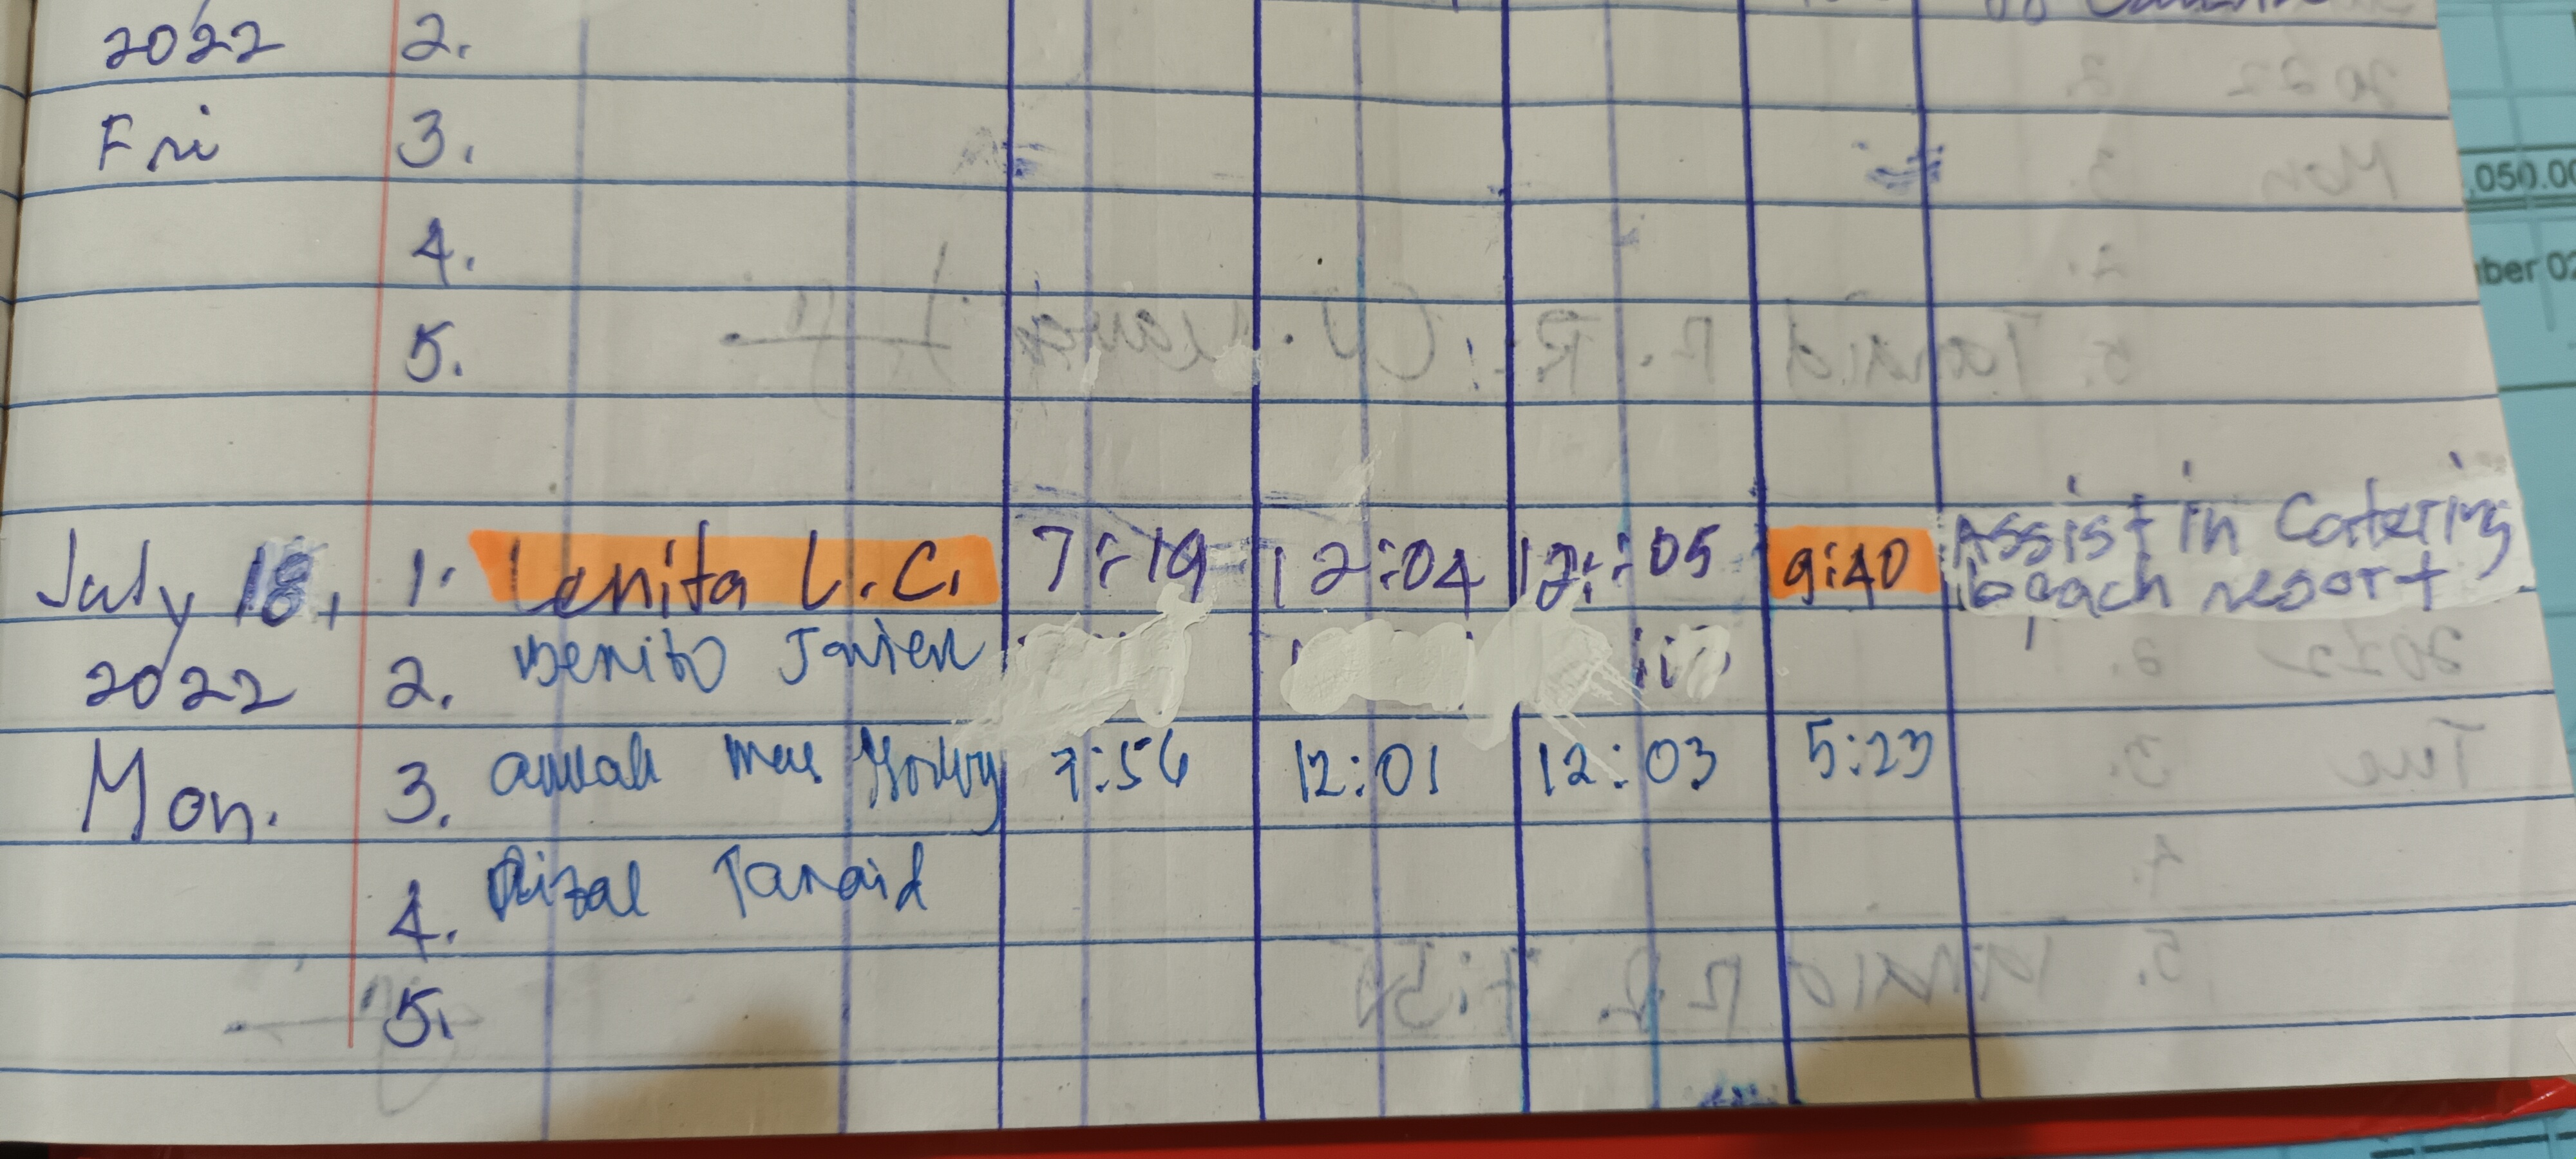 2022 2.
Fri 3.
4.
5.
July 18, 1. Lenita L.C. 7:19 12:04 12:05 9:40 Assist in Catering
beach resort
2022 2. Benito Javier
Mon. 3. 7:56 12:01 12:03 5:23
4. Rizal Tanaid
5.
050.00
ber 02